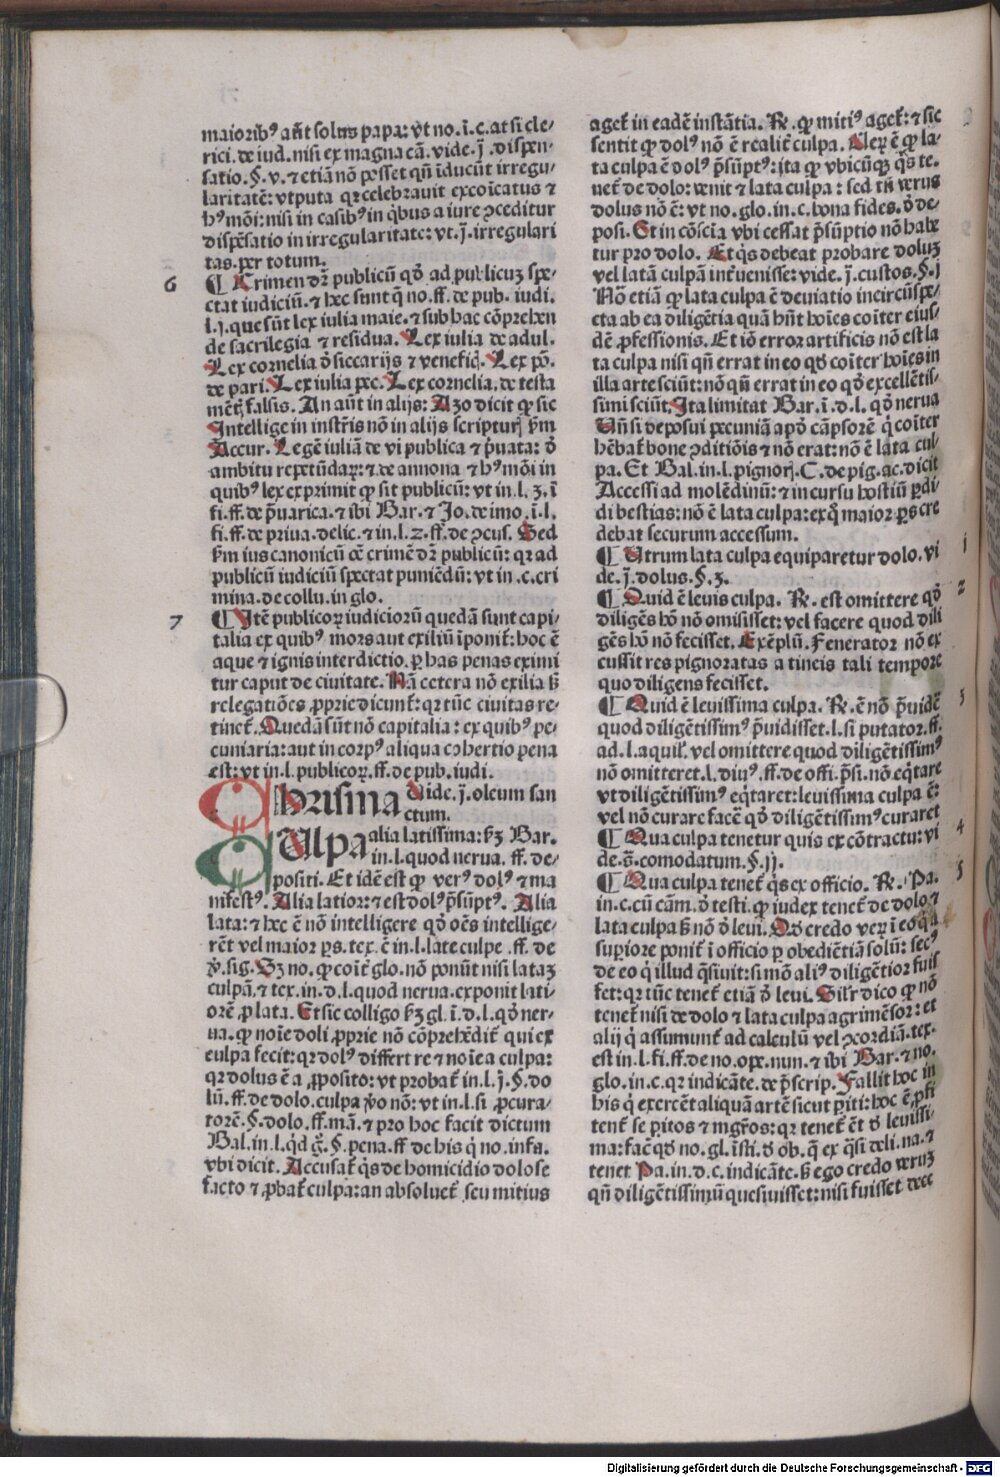 maioribꝰ aūt solus papa: vt no. ī. c. at si cle-
rici. de iud. nisi ex magna cā. vide. j̄. dispen-
satio. §. v. ⁊ etiā nō posset qn̄ īducūt irregu-
laritatē: vtputa qꝛ celebrauit excoīcatus ⁊
hꝰmōi: nisi in casibꝰ in qͥbus a iure ꝯceditur
dispēsatio in irregularitate: vt. j̄. irregulari
tas. per totum.
6
¶ Crimen dr̄ publicū qō ad publicuꝫ spe-
ctat iudiciū. ⁊ hec sunt q̄ no. ff. de pub. iudi.
l. j. que sūt lex iulia maie. ⁊ sub hac cōprehen
de sacrilegia ⁊ residua. Lex iulia de adul.
Lex cornelia ō siccarijs ⁊ venefiq̄. Lex pō.
de pari. Lex iulia pec. Lex cornelia. de testa
mētꝭ falsis. An aūt in alijs: Azo dicit ꝙ sic
Intellige in instrīs nō in alijs scripturꝭ ẜm
Accur. Legē iuliā de vi publica ⁊ p̄uata: ō
ambitu repetūdaꝝ: ⁊ de annona ⁊ hꝰmōi in
quibꝰ lex exprimit ꝙ sit publicū: vt in. l. 3. ī
fi. ff. de p̄uarica. ⁊ ibi Bar. ⁊ Jo. de imo. ī. l.
fi. ff. de priua. delic. ⁊ in. l. 2. ff. de ꝯcus. Sed
ẜm ius canonicū oē crimē dr̄ publicū: qꝛ ad
publicū iudiciū spectat puniēdū: vt in .c. cri
mina. de collu. in glo.
7
¶ Itē publicoꝝ iudicioꝝū quedā sunt capi-
talia ex quibꝰ mors aut exiliū īponit᷑: hoc ē
aque ⁊ ignis interdictio. ꝑ has penas eximi
tur caput de ciuitate. Nā cetera nō exilia ẜꝫ
relegatiōes ꝓprie dicunt᷑: qꝛ tūc ciuitas re-
tinet᷑. Quedā sūt nō capitalia: ex quibꝰ pe-
cuniaria: aut in corpꝰ aliqua cohertio pena
est: vt in. l. publicoꝝ. ff. de pub. iudi.
Chrisma Vide. j̄. oleum san
ctum.
CUlpa alia latissima: ẜꝫ Bar.
in. l. quod nerua. ff. de-
positi. Et idē est ꝙ verꝰ dolꝰ ⁊ ma
nifestꝰ. Alia latior: ⁊ est dolꝰ p̄sūptꝰ. Alia
lata: ⁊ hec ē nō intelligere qō oēs intellige-
rēt vel maior ꝑs. tex. ē in. l. late culpe. ff. de
ꝟ. sig. Sꝫ no. ꝙ coīt᷑ glo. nō ponūt nisi lataꝫ
culpā. ⁊ tex. in. d. l. quod nerua. exponit lati-
orē ꝓ lata. Et sic colligo ẜꝫ gl. ī. d. l. qō ner-
ua. ꝙ noīe doli ꝓprie nō cōprehēdit᷑ qui ex
culpa fecit: qꝛ dolꝰ differt re ⁊ noīe a culpa:
qꝛ dolus ē a ꝓposito: vt probat᷑ in. l. j. §. do
lū. ff. de dolo. culpa ꝟo nō: vt in. l. si ꝓcura-
torē. §. dolo. ff. mā. ⁊ pro hoc facit dictum
Bal. in. l. qͥd g̊. §. pena. ff. de his qͥ no. infa.
vbi dicit. Accusat᷑ qͥs de homicidio dolose
facto ⁊ ꝓbat᷑ culpa: an absoluet᷑ seu mitius
aget᷑ in eadē instātia. ℞. ꝙ mitiꝰ aget᷑: ⁊ sic
sentit ꝙ dolꝰ nō ē realit᷑ culpa. Uerū ē ꝙ la-
ta culpa ē dolꝰ p̄sūptꝰ: ita ꝙ vbicūqꝫ qͥs te-
net᷑ de dolo: venit ⁊ lata culpa: sed tn̄ verus
dolus nō ē: vt no. glo. in. c. bona fides. ō de-
posi. Et in cōscīa vbi cessat p̄sūptio nō habe
tur pro dolo. Et qͥs debeat probare doluꝫ
vel latā culpā int᷑uenisse: vide. j̄. custos. §. j
Nō etiā ꝙ lata culpa ē deuiatio incircūspe-
cta ab ea diligētia quā hn̄t hoīes coīter eius-
dē ꝓfessionis. Et iō error artificis nō est la
ta culpa nisi qn̄ errat in eo qō coīter hoīes in
illa arte sciūt: nō qn̄ errat in eo qō excellētis-
simi sciūt. Ita limitat Bar. ī. d. l. qō nerua
Uñ si deposui pecuniā apō cāpsorē q̄ coīter
hēbat᷑ bone ꝯditiōis ⁊ nō erat: nō ē lata cul-
pa. Et Bal. in. l. pignorꝭ. C. de pig. ac. dicit
Accessi ad molēdinū: ⁊ in cursu hostiū ꝑdi-
di bestias: nō ē lata culpa: ex quo maior ꝑs cre
debat securum accessum.
1
¶ Utrum lata culpa equiparetur dolo. vi
de. j̄. dolus. §. 3.
2
¶ Quid ē leuis culpa. ℞. est omittere qō
diligēs hō nō omisisset: vel facere quod dili
gēs hō nō fecisset. Exēplū. Fenerator nō ex
cussit res pignoratas a tineis tali tempore
quo diligens fecisset.
3
¶ Quid ē leuissima culpa. ℞. ē nō p̄uidē
quod diligētissimꝰ p̄uidisset. l. si putator. ff.
ad. l. aquil᷑. vel omittere quod diligētissimꝰ
nō omitteret. l. diuꝰ. ff. de offi. p̄si. nō eq̄tare
vt diligētissimꝰ eq̄taret: leuissima culpa ē:
vel nō curare facē qō diligētissimꝰ curaret
4
¶ Qua culpa tenetur quis ex cōtractu: vi
de. s̄. comodatum. §. ij.
5
¶ Qua culpa tenet᷑ qͥs ex officio. ℞. Pa.
in. c. cū cām. ō testi. ꝙ iudex tenet᷑ de dolo ⁊
lata culpa ẜꝫ nō ō leui. Qō credo veꝝ ī eo q̄ a
suꝑiore ponit᷑ ī officio ꝑ obediētiā solū: secꝰ
de eo qͥ illud q̄siuit: si mō aliꝰ diligētior fuis
set: qꝛ tūc tenet᷑ etiā ō leui. Silr̄ dico ꝙ nō
tenet᷑ nisi de dolo ⁊ lata culpa agrimēsor: et
alij qͥ assumunt᷑ ad calculū vel ꝯcordiā. tex.
est in. l. fi. ff. de no. ope. nun. ⁊ ibi Bar. ⁊ no.
glo. in. c. qꝛ indicāte. de p̄scrip. Fallit hoc in
his qͥ exercēt aliquā artē sicut ꝑiti: hoc ē ꝓfi
tent᷑ se ꝑitos ⁊ mgr̄os: qꝛ tenet᷑ ēt ō leuissi-
ma: facē qō no. gl. īsti. ō ob. q̄ ex q̄si deli. na. ⁊
tenet Pa. in. d. c. indicāte. ẜꝫ ego credo veruꝫ
qn̄ diligētissimū quesiuisset: nisi fuisset dece
Digitalisierung gefördert durch die Deutsche Forschungsgemeinschaft - DFG